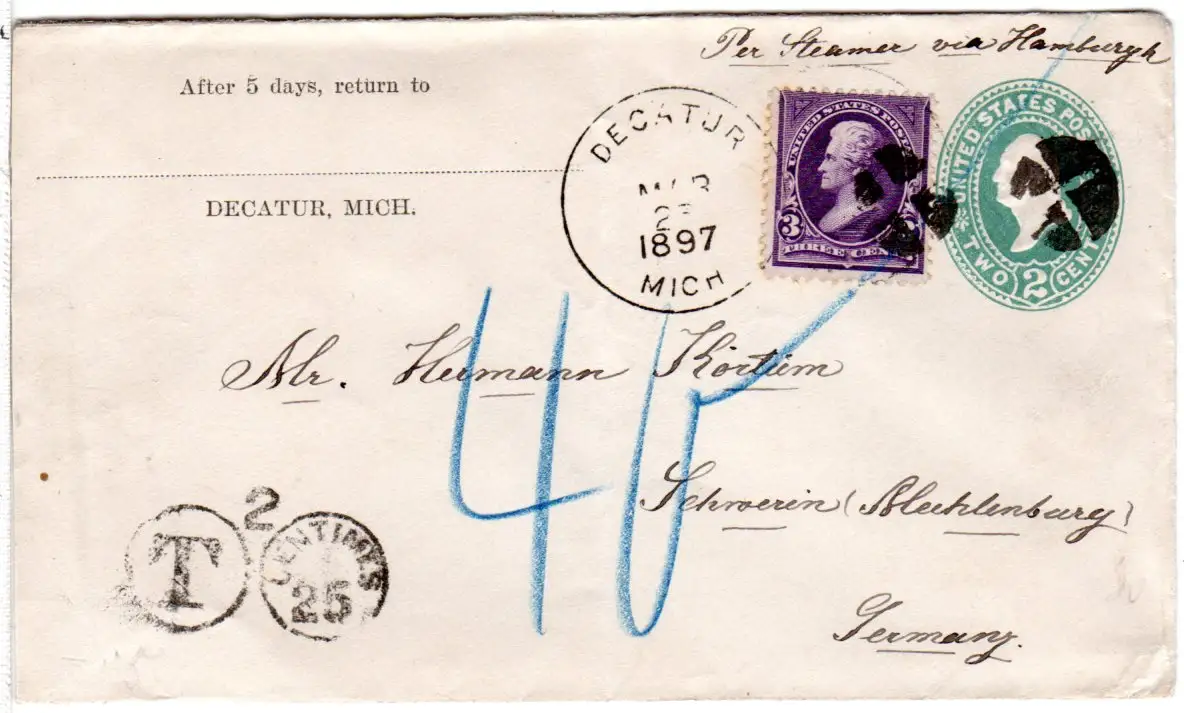 Per Steamer via Hamburgh
After 5 days, return to
DECATUR, MICH.
DECATUR
MAR
1897
MICH
UNITED STATES POSTAGE
3
THREE CENTS
UNITED STATES POSTAGE
TWO 2 CENTS
Mr. Hermann Körtüm
40
Schwerin (Mechlenburg)
Germany.
T
2
CENTIMES
25